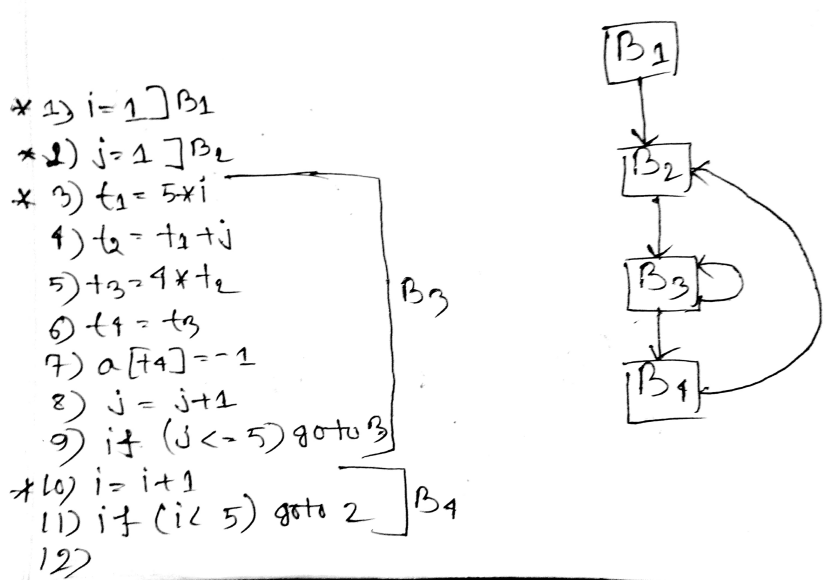 * 1) i = 1 ] B1
* 2) j = 1 ] B2
* 3) t1 = 5*i
4) t2 = t1 + j
5) t3 = 4 * t2
6) t4 = t3
7) a[t4] = -1
8) j = j+1
9) if (j <= 5) goto 3
B3
* 10) i = i + 1
11) if (i < 5) goto 2
B4
12)
B1
B2
B3
B4